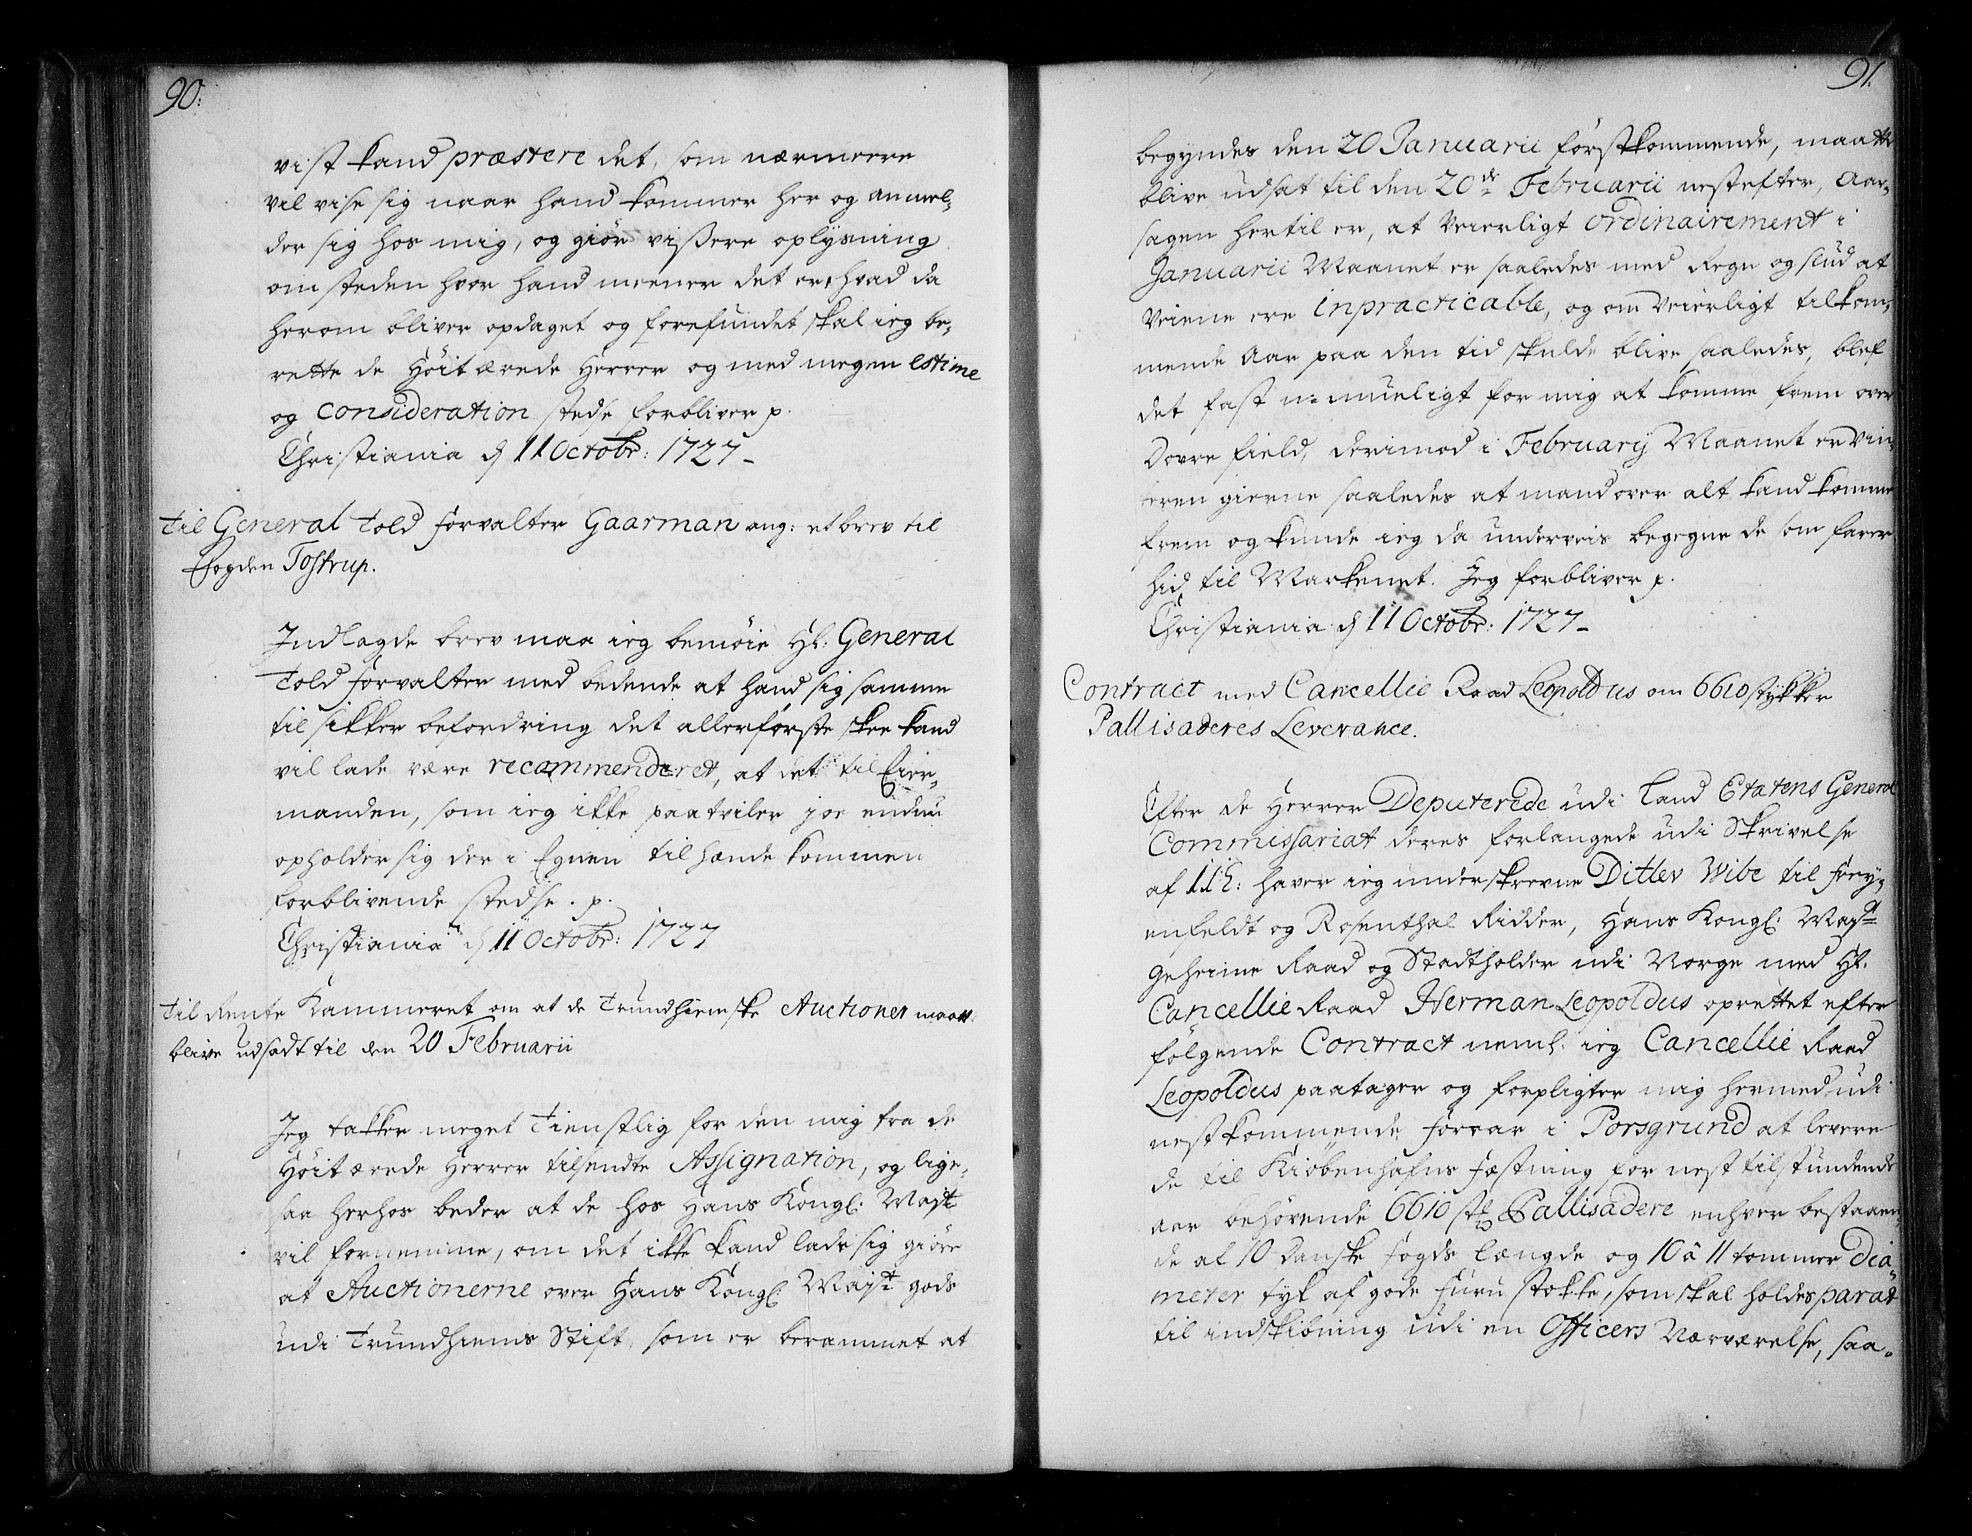 90:
vist kand præstere det, som nærmere
vil vise sig naar hand kommer her og anmel-
der sig hos mig, og giør vißere oplysning
om steden hvor hand meener det er, hvad da
herom bliver opdaget og forefundet skal ieg be-
rette de Høitærede Herrer og med megen estime
og consideration stedse forbliver p.
Christiania d 11 Octobr: 1727-
Til General Told forvalter Gaarman ang: et brev til
Fogden Tostrup.
Indlagde brev maa ieg bemøie Hr: General
Told forvalter med bedende at hand sig samme
til sikker befordring det allerførste skee kand
vil lade være recommenderet, at det til Eier-
manden, som ieg ikke paatviler jo endnu
opholder sig der i Egnen til hænde kommen
forblivende stedse. p.
Christiania d 11 Octobr: 1727
Til Rente Kammeret om at de Trundhiemske Auctioner maatte
blive udsadt til den 20 Februarii
Jeg takker meget Tienstlig for den mig fra de
Høitærede Herrer tilsendte Assignation, og lige-
saa herhos beder at de hos Hans Kongl: Majt
vil fornemme, om det ikke kand lade sig giøre
at Auctionerne over Hans Kongl: Majt gods
udi Trundhiems Stift, som er berammet at
91.
begyndes den 20 Januarii førstkommende, maatte
blive udsat til den 20de Februarii nestefter, Aar-
sagen hertil er, at Veierligt ordinairement i
Januarii Maanet er saaledes med Regn og slud at
Veiene ere inpracticable, og om Veierligt tilkom-
mende Aar paa den tid skulde blive saaledes, blef
det fast umueligt for mig at komme frem over
Dovre field, derimod i Februarij Maanet er Vin-
teren gierne saaledes at mand over alt kand komme
frem og kunde ieg da underveis begegne de som farer
hid til Markenet. Jeg forbliver p.
Christiania d 11 Octobr: 1727-
Contract med Cancellie Raad Leopoldus om 6610 stykker
Pallisaderes Leverance.
Efter de Herrer Deputerede udi Land Etatens General
Commissariat deres forlangede udi Skrivelse
af haver ieg underskrevne Ditlev Wibe til Frey-
enfeldt og Rosenthal Ridder, Hans Kongl: Majts
Geheime Raad og Stadtholder udi Norge med Hr.
Cancellie Raad Herman Leopoldus oprettet efter
følgende Contract neml: ieg Cancellie Raad
Leopoldus paatager og forpligter mig hermed udi
nestkommende foraar i Porsgrund at levere
de til Kiøbenhafns fæstning for nest tilstundende
aar behørende 6610 stk Pallisadere enhver bestaaen-
de af 10 Danske fogds længde og 10 à 11 tommer Dia-
meter tyk af gode furu stokke, som skal holdes parat
til indskibning udi en Officers Nærværelse, saa-